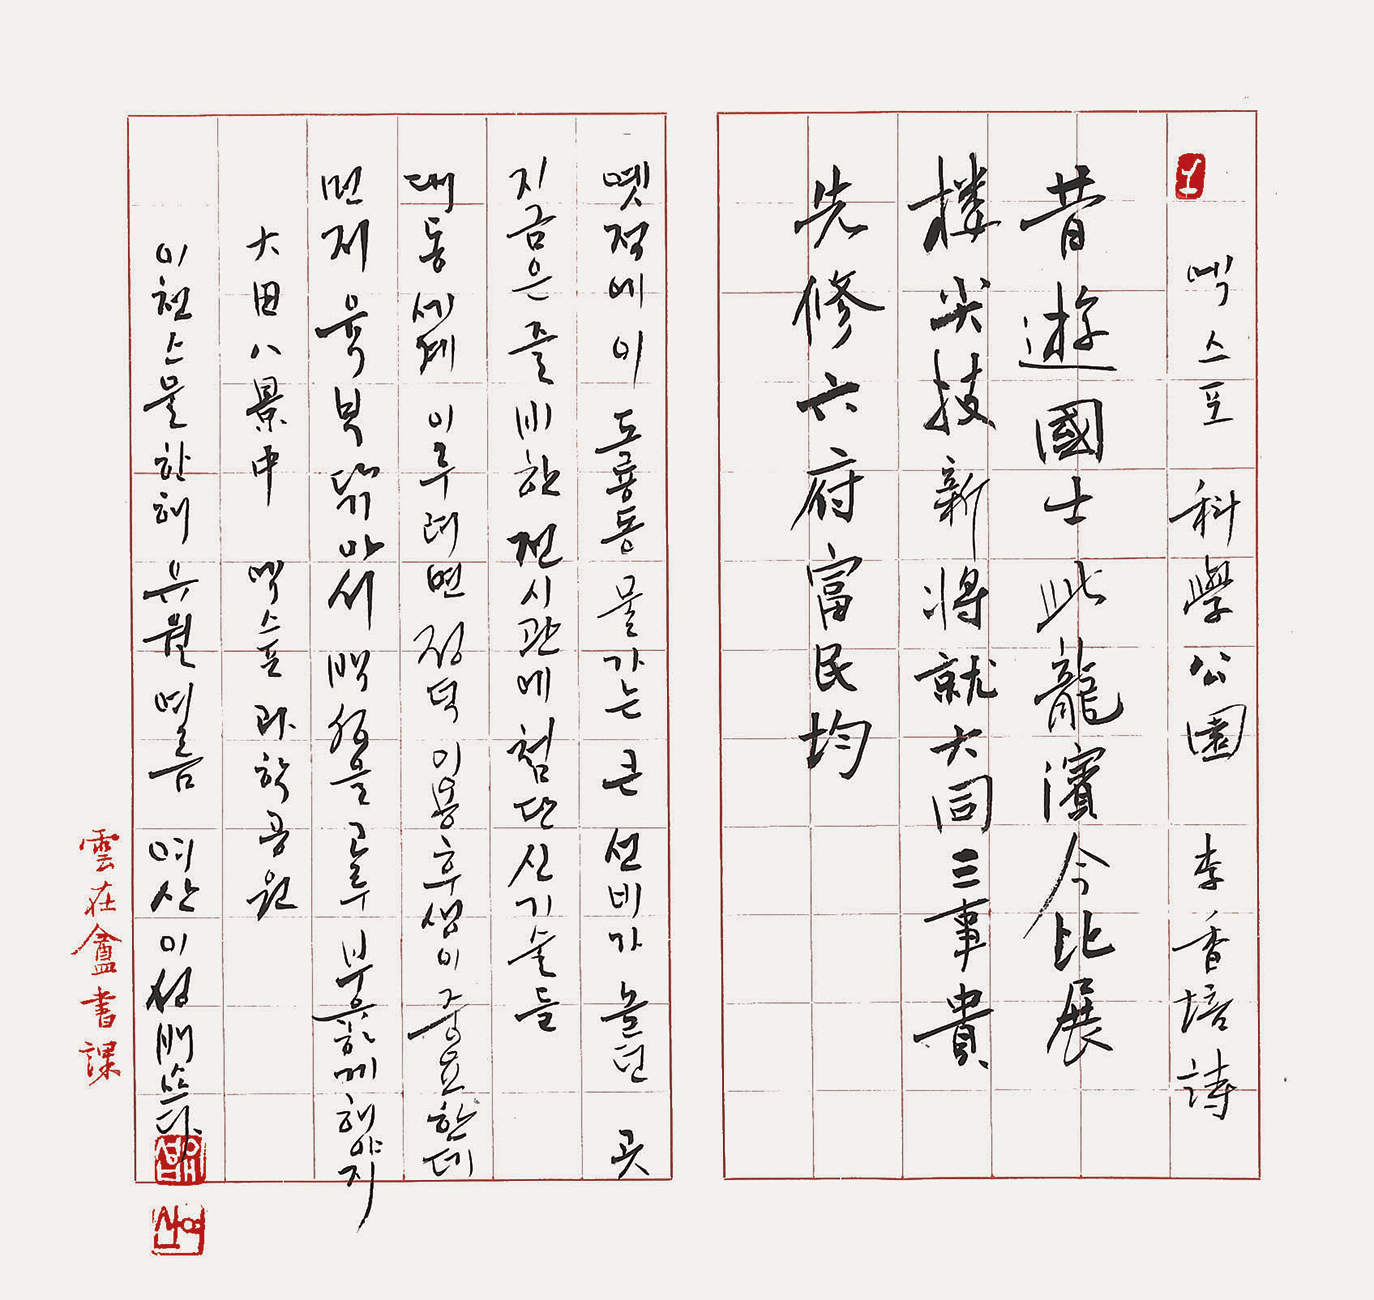 엑스포 科學公園 李香培詩
昔遊國士此龍濱今比展
樓尖技新將就大同三事貴
先修六府富民均
옛적에 이 도룡동 물가는 큰 선비가 놀던 곳
지금은 줄비한 전시관에 첨단 신기술들
대동세계 이루려면 정덕 이용후생이 중요한데
먼저 육부 닦아서 백성들 고루 부유하게 해야지
大田八景中 엑스포 과학공원
이천스물한해 유월 여름 여산 이성배 쓰다
雲在盦書課
여산